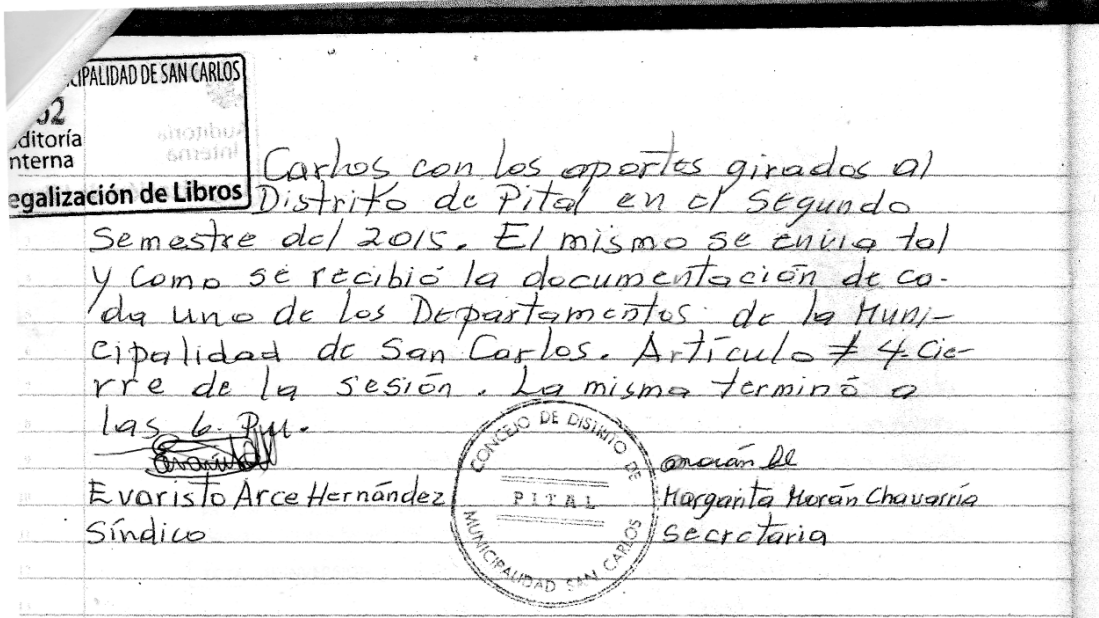 CIPALIDAD DE SAN CARLOS
ditoría
nterna
egalización de Libros
Carlos con los aportes girados al
Distrito de Pital en el Segundo
Semestre del 2015. El mismo se envia tal
y como se recibió la documentación de ca-
da uno de los Departamentos de la Muni-
cipalidad de San Carlos. Artículo # 4. Cie-
rre de la sesión. La misma terminó a
las 6. Pm.
Evaristo Arce Hernández
Síndico
CONCEJO DE DISTRITO DE
PITAL
MUNICIPALIDAD SAN CARLOS
Margarita Morán Chavarría
Secretaria